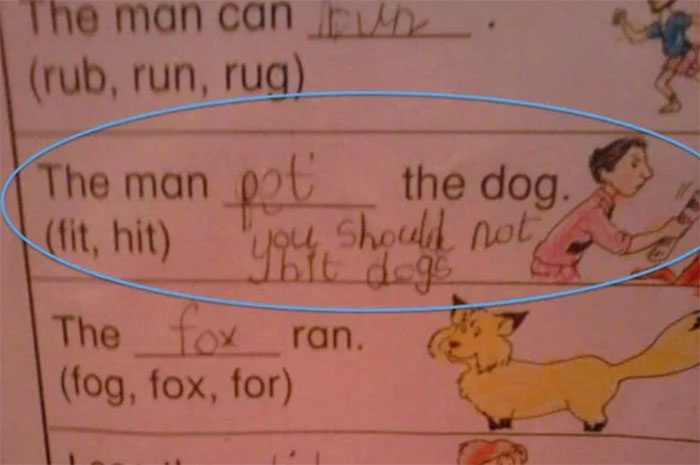 The man can run .
(rub, run, rug)
The man pet the dog.
(fit, hit) you should not
hit dogs
The fox ran.
(fog, fox, for)